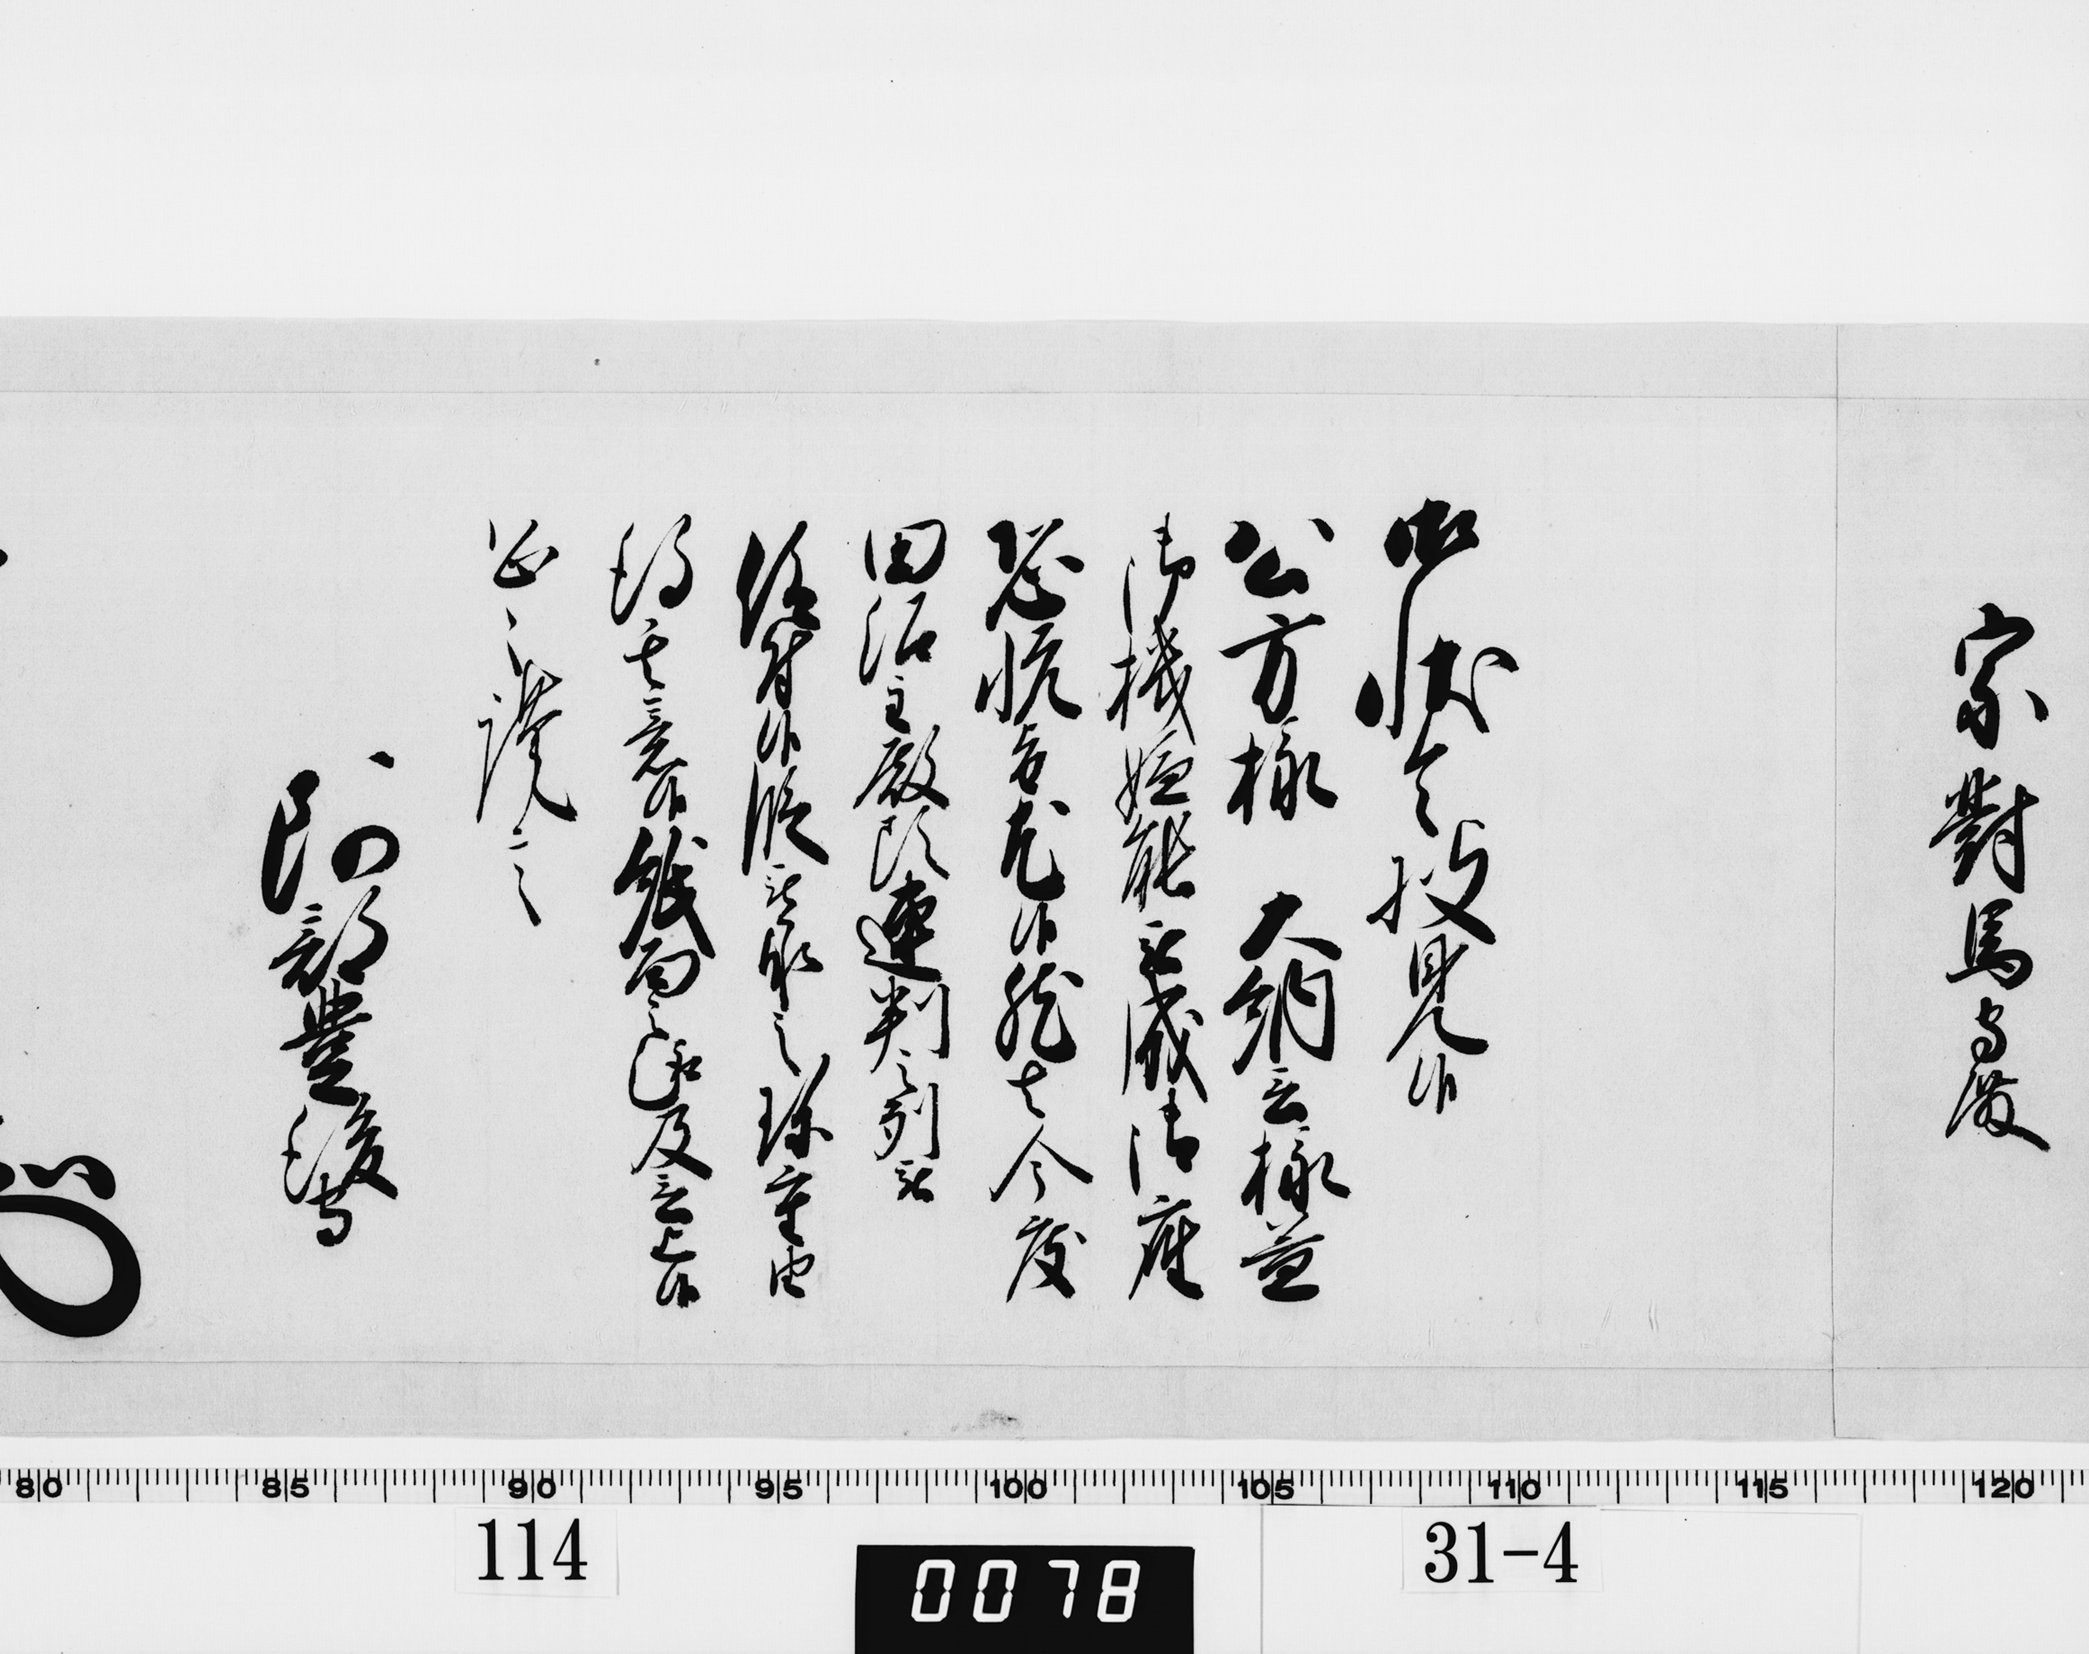 宗對馬守殿
御状令披見候
公方様 大納言様益
御機嫌能被成御座
恐悦旨尤候然者今度
田沼主殿頭連判之列被
仰付候段被承之珍重由
得其意候紙面之趣及言上候
恐々謹言
阿部豊後守
80 85 90 95 100 105 110 115 120
114
0078
31-4